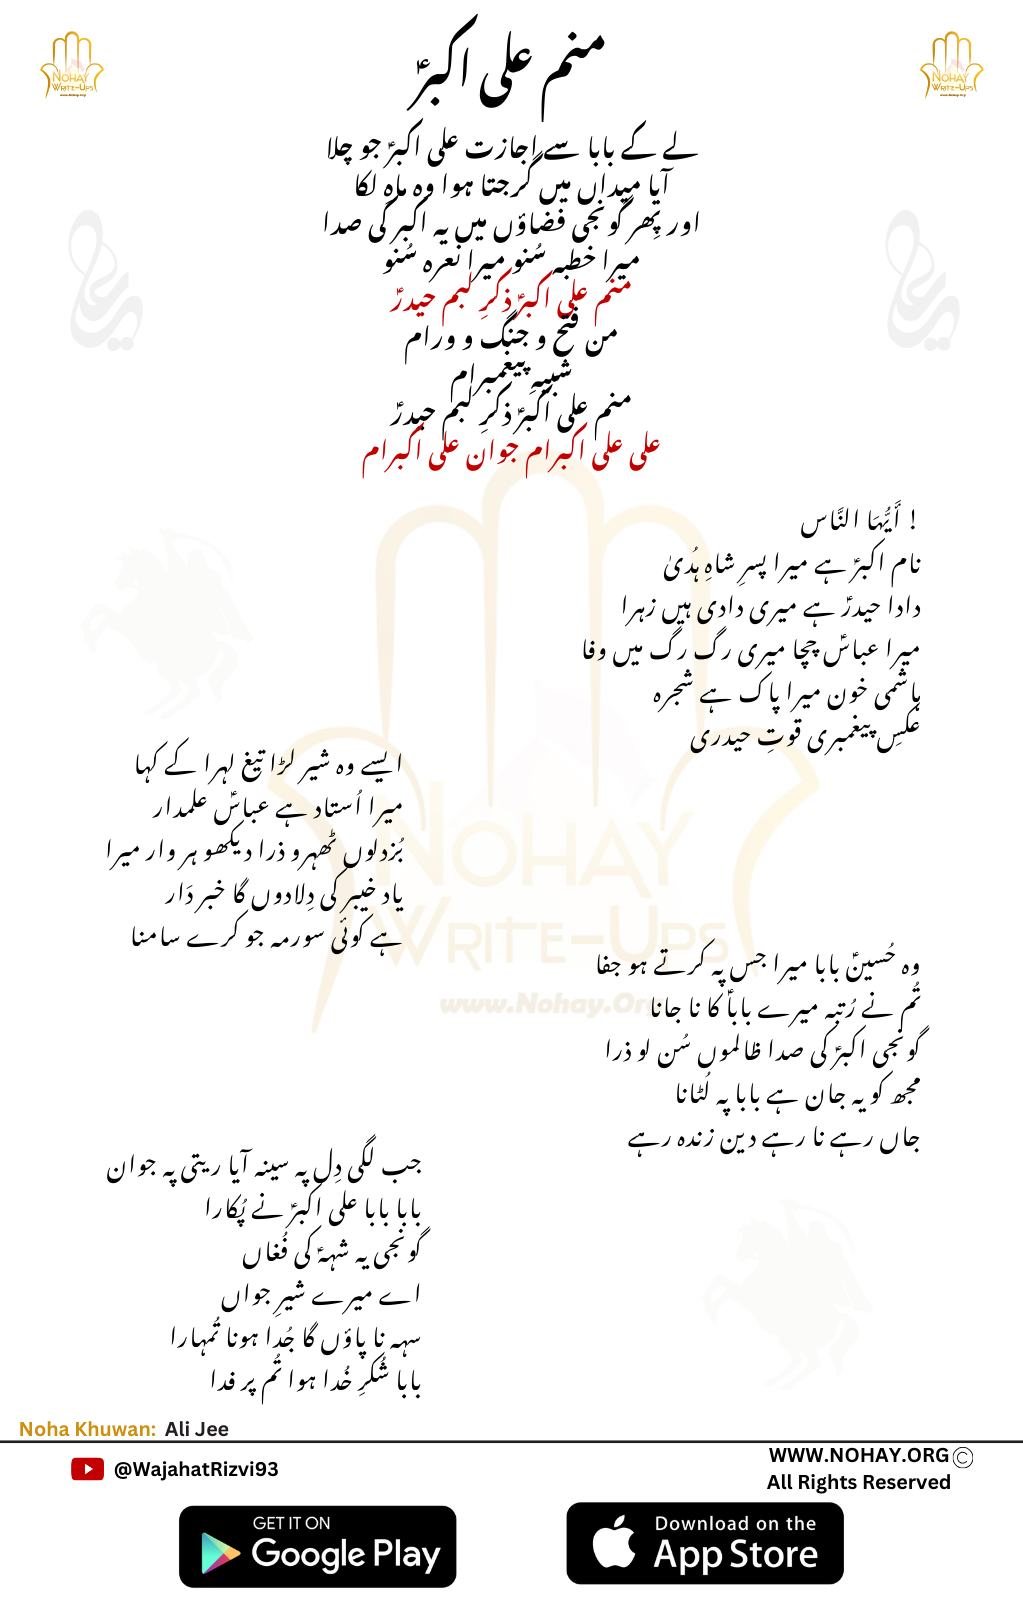 منم علی اکبرؑ
لے کے بابا سے اجازت علی اکبرؑ جو چلا
آیا میداں میں گرجتا ہوا وہ ماہِ لکا
اور پِھر گونجی فضاؤں میں یہ اکبر کی صدا
میرا خطبہ سُنو میرا نعرہ سُنو
منم علی اکبرؑ ذکرِ لبم حیدرؑ
من فتح و جنگ و ورام
شبیہِ پیغمبرام
منم علی اکبرؑ ذکرِ لبم حیدرؑ
علی علی اکبرام جوان علی اکبرام
! أَيُّهَا النَّاس
نام اکبرؑ ہے میرا پسرِ شاہِ ہُدیٰ
دادا حیدرؑ ہے میری دادی ہیں زہرا
میرا عباسؑ چچا میری رگ رگ میں وفا
ہاشمی خون میرا پاک ہے شجرہ
عکسِ پیغمبری قوتِ حیدری
ایسے وہ شیر لڑا تیغ لہرا کے کہا
میرا اُستاد ہے عباسؑ علمدار
بُزدلوں ٹھہرو ذرا دیکھو ہر وار میرا
یاد خیبر کی دِلادوں گا خبر دَار
ہے کوئی سورمہ جو کرے سامنا
وہ حُسینؑ بابا میرا جس پہ کرتے ہو جفا
تُم نے رُتبہ میرے باباؑ کا نا جانا
گونجی اکبرؑ کی صدا ظالموں سُن لو ذرا
مجھ کو یہ جان ہے بابا پہ لُٹانا
جاں رہے نا رہے دین زندہ رہے
جب لگی دِل پہ سینہ آیا ریتی پہ جوان
بابا بابا علی اکبرؑ نے پُکارا
گونجی یہ شہہؑ کی فُغاں
اے میرے شیرِ جواں
سہہ نا پاؤں گا جُدا ہونا تُمہارا
بابا شُکرِ خُدا ہوا تُم پر فدا
NOHAY
WRITE-UPS
www.Nohay.Org
Noha Khuwan: Ali Jee
@WajahatRizvi93
WWW.NOHAY.ORG©
All Rights Reserved
GET IT ON
Google Play
Download on the
App Store